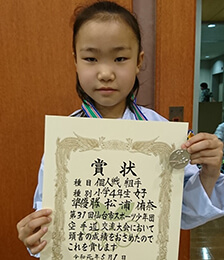 賞状
種目 個人戦 組手
種別 小学4年生 女子
準優勝 松浦
第31回仙台市スポーツ少年団
空手道交流大会において
頭書の成績をおさめたので
これを賞します
令和元年5月1日